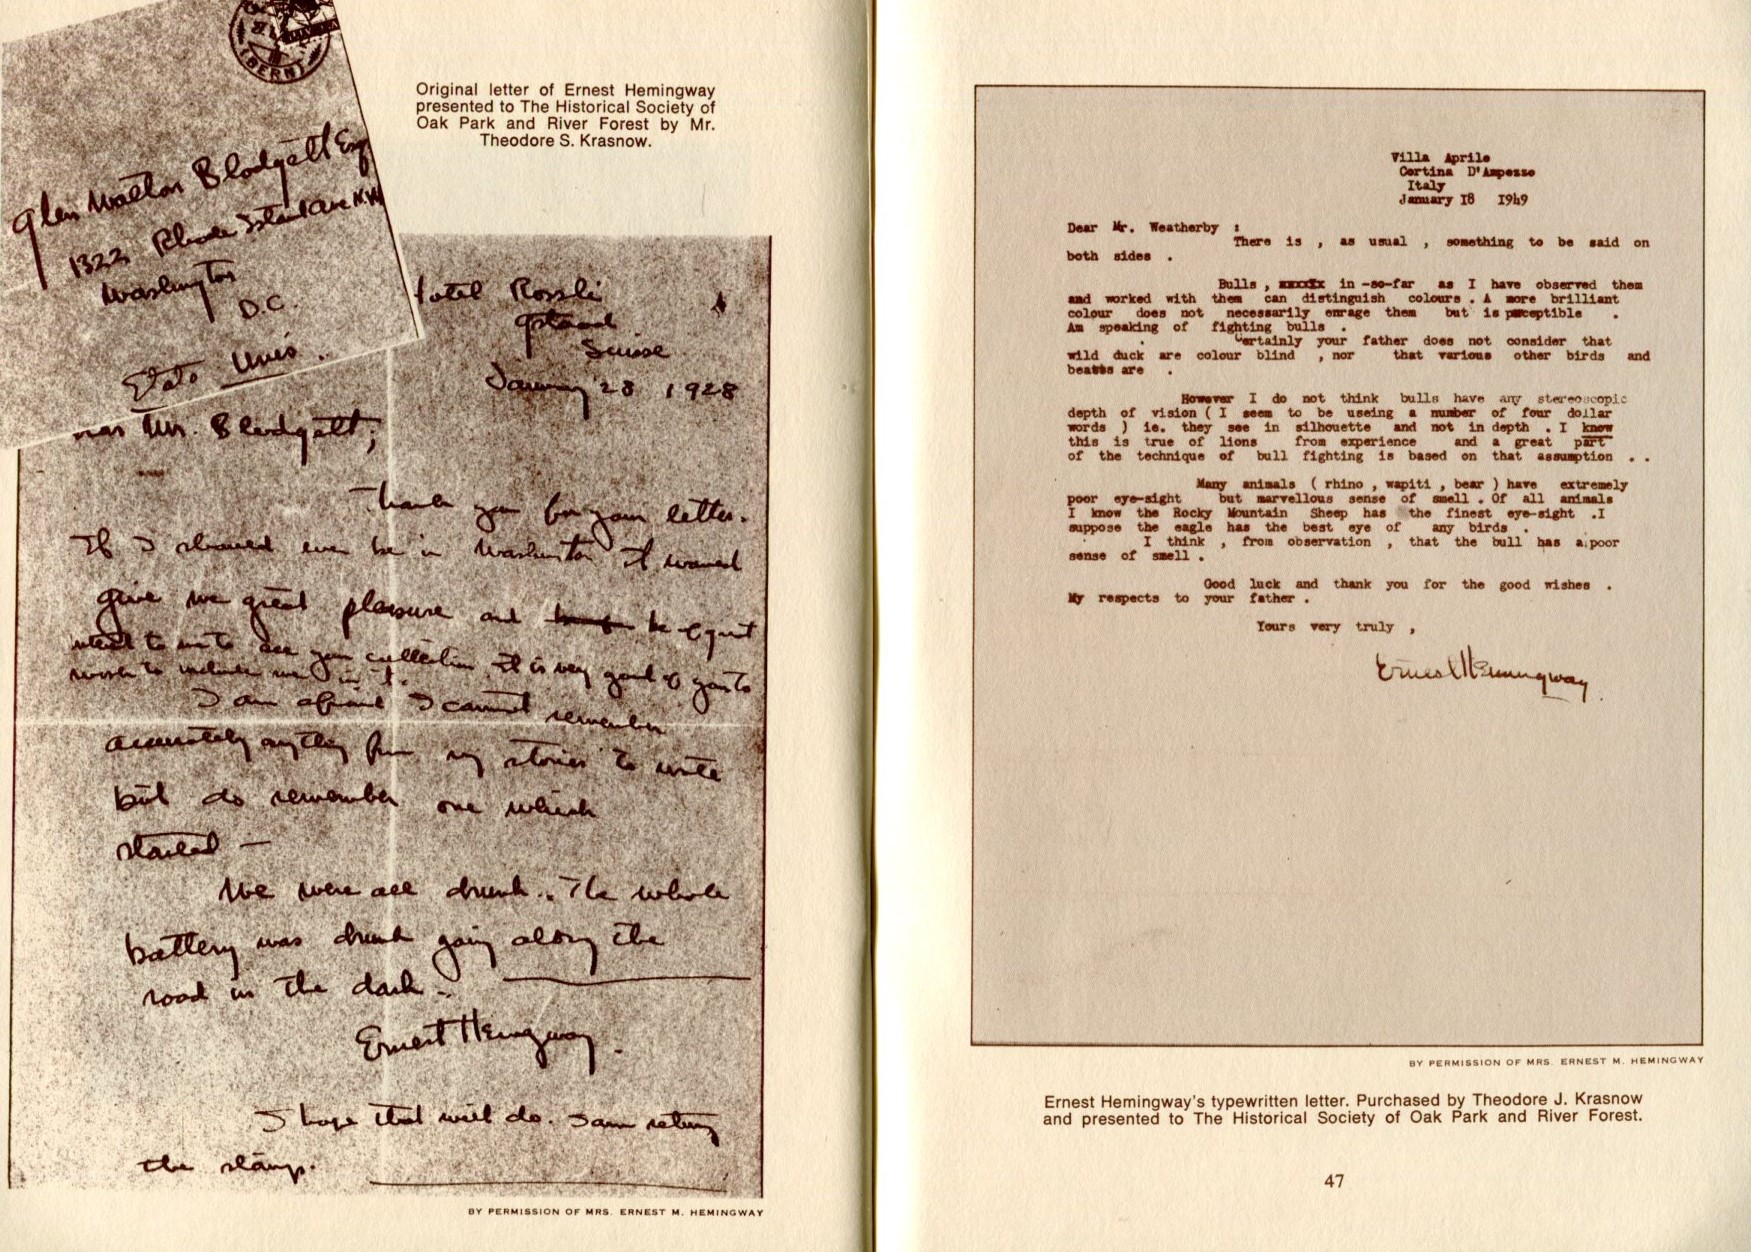 (BERN)
Glen Walton Blodgett Esq
1322 Rhode Island Ave N.W
Washington
D.C.
Etats Unis.
Original letter of Ernest Hemingway
presented to The Historical Society of
Oak Park and River Forest by Mr.
Theodore S. Krasnow.
Hotel Rossli
Gstaad
Suisse
January 28 1928
Dear Mr. Blodgett;
Thank you for your letter.
If I should ever be in Washington it would
give me great pleasure and be of great
interest to me to see your collection. It is very good of you to
wish to include me in it.
I am afraid I cannot remember
accurately anything from my stories to write
but do remember one which
started —
We were all drunk.. The whole
battery was drunk going along the
road in the dark..
Ernest Hemingway.
I hope that will do. I am returning
the stamp.
BY PERMISSION OF MRS. ERNEST M. HEMINGWAY
Villa Aprile
Cortina D'Ampezzo
Italy
January 18 1949
Dear Mr. Weatherby :
There is , as usual , something to be said on
both sides .
Bulls , xxxxxx in -so-far as I have observed them
and worked with them can distinguish colours . A more brilliant
colour does not necessarily enrage them but is perceptible .
Am speaking of fighting bulls .
Certainly your father does not consider that
wild duck are colour blind , nor that various other birds and
beasts are .
However I do not think bulls have any stereoscopic
depth of vision ( I seem to be useing a number of four dollar
words ) ie. they see in silhouette and not in depth . I know
this is true of lions from experience and a great part
of the technique of bull fighting is based on that assumption . .
Many animals ( rhino , wapiti , bear ) have extremely
poor eye-sight but marvellous sense of smell . Of all animals
I know the Rocky Mountain Sheep has the finest eye-sight .I
suppose the eagle has the best eye of any birds .
I think , from observation , that the bull has a poor
sense of smell .
Good luck and thank you for the good wishes .
My respects to your father .
Yours very truly ,
Ernest Hemingway
BY PERMISSION OF MRS. ERNEST M. HEMINGWAY
Ernest Hemingway's typewritten letter. Purchased by Theodore J. Krasnow
and presented to The Historical Society of Oak Park and River Forest.
47